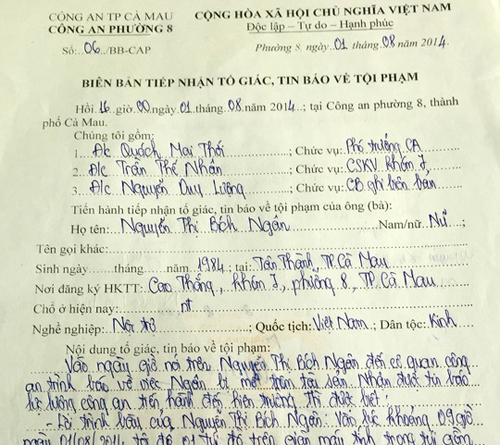 CÔNG AN TP CÀ MAU CỘNG HÒA XÃ HỘI CHỦ NGHĨA VIỆT NAM
CÔNG AN PHƯỜNG 8 Độc lập – Tự do – Hạnh phúc
Số: 06 /BB-CAP Phường 8, ngày 01 tháng 08 năm 2014.
BIÊN BẢN TIẾP NHẬN TỐ GIÁC, TIN BÁO VỀ TỘI PHẠM
Hồi 16 giờ 00 ngày 01 tháng 08 năm 2014; tại Công an phường 8, thành
phố Cà Mau.
Chúng tôi gồm:
1. Đ/c Quách Mai Thới ; Chức vụ: Phó trưởng CA
2. Đ/c Trần Thế Nhân ; Chức vụ: CSKV Khóm 7,
3. Đ/c Nguyễn Duy Lương ; Chức vụ: CB ghi biên bản
Tiến hành tiếp nhận tố giác, tin báo về tội phạm của ông (bà):
Họ tên: Nguyễn Thị Bích Ngân Nam/nữ: Nữ ;
Tên gọi khác:
Sinh ngày tháng năm 1984; tại: Tân Thành, TP Cà Mau
Nơi đăng ký HKTT: Cao Thắng, Khóm 7, phường 8, TP Cà Mau
Chỗ ở hiện nay: nt
Nghề nghiệp: Nội trợ ; Quốc tịch: Việt Nam; Dân tộc: Kinh
Nội dung tố giác, tin báo về tội phạm:
Vào ngày giờ nói trên Nguyễn Thị Bích Ngân đến cơ quan công
an trình báo về việc Ngân bị mất trộm tài sản. Nhận được tin báo
lực lượng công an tiến hành đến hiện trường thì được biết:
- Lời trình bày của Nguyễn Thị Bích Ngân: Vào lúc khoảng 09 giờ
ngày 01/08/2014